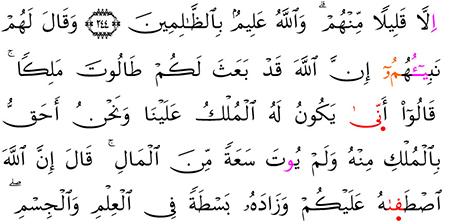 اِلَّا قَلِيلًا مِّنْهُمْ ۗ وَٱللَّهُ عَلِيمُۢ بِٱلظَّـٰلِمِينَ ﴿٢٤٤﴾ وَقَالَ لَهُمْ
نَبِيـُٔهُمُۥٓ إِنَّ ٱللَّهَ قَدْ بَعَثَ لَكُمْ طَالُوتَ مَلِكًا ۚ
قَالُوٓاْ أَنّۭىٰ يَكُونُ لَهُ ٱلْمُلْكُ عَلَيْنَا وَنَحْنُ أَحَقُّ
بِٱلْمُلْكِ مِنْهُ وَلَمْ يُوتَ سَعَةً مِّنَ ٱلْمَالِ ۚ قَالَ إِنَّ ٱللَّهَ
ٱصْطَفۭىٰهُ عَلَيْكُمْ وَزَادَهُۥ بَسْطَةً فِي ٱلْعِلْمِ وَٱلْجِسْمِ ۖ